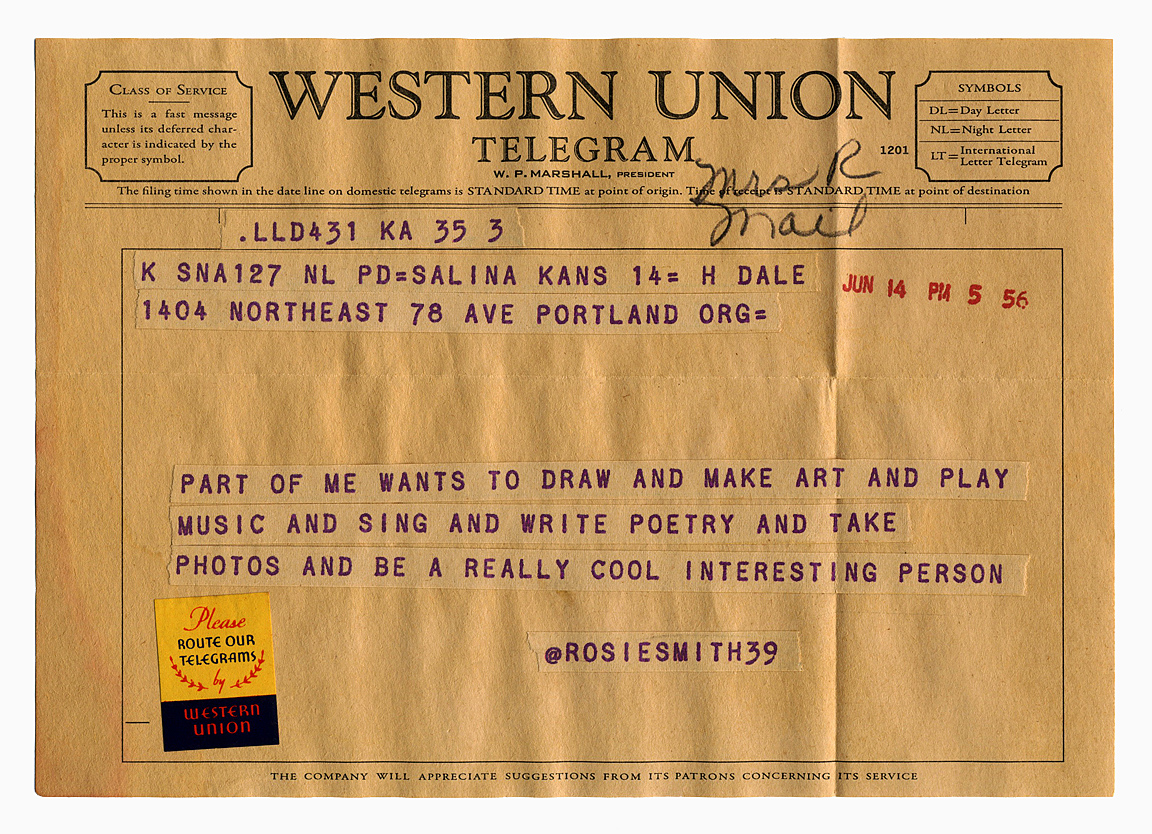 CLASS OF SERVICE
This is a fast message
unless its deferred char-
acter is indicated by the
proper symbol.
WESTERN UNION
TELEGRAM
W. P. MARSHALL, PRESIDENT
1201
SYMBOLS
DL=Day Letter
NL=Night Letter
LT=International
Letter Telegram
Mrs R
Mail
The filing time shown in the date line on domestic telegrams is STANDARD TIME at point of origin. Time of receipt is STANDARD TIME at point of destination
.LLD431 KA 35 3
K SNA127 NL PD=SALINA KANS 14= H DALE
JUN 14 PM 5 56
1404 NORTHEAST 78 AVE PORTLAND ORG=
PART OF ME WANTS TO DRAW AND MAKE ART AND PLAY
MUSIC AND SING AND WRITE POETRY AND TAKE
PHOTOS AND BE A REALLY COOL INTERESTING PERSON
@ROSIESMITH39
Please
ROUTE OUR
TELEGRAMS
by
WESTERN
UNION
THE COMPANY WILL APPRECIATE SUGGESTIONS FROM ITS PATRONS CONCERNING ITS SERVICE